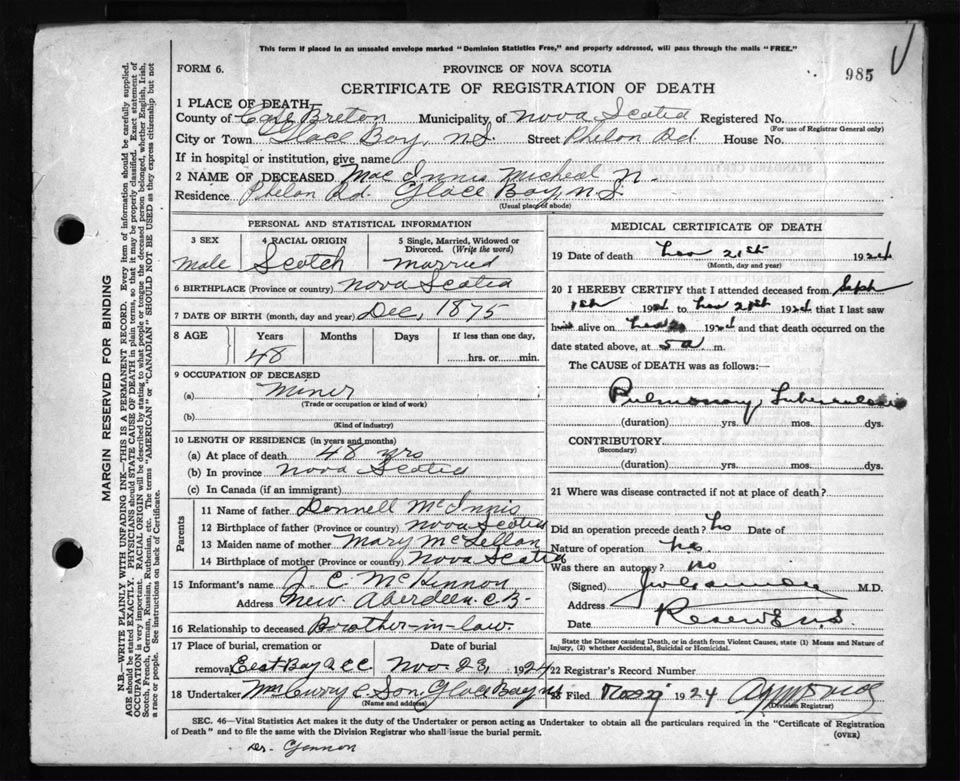 This form if placed in an unsealed envelope marked "Dominion Statistics Free," and properly addressed, will pass through the mails "FREE."
FORM 6.
PROVINCE OF NOVA SCOTIA
985
CERTIFICATE OF REGISTRATION OF DEATH
1 PLACE OF DEATH
County of Cape Breton Municipality of Nova Scotia Registered No.
(For use of Registrar General only)
City or Town Glace Bay, N.S. Street Phelon Rd House No.
If in hospital or institution, give name
2 NAME OF DECEASED Mac Innis Micheal N.
Residence Phelon Rd. Glace Bay N.S.
(Usual place of abode)
PERSONAL AND STATISTICAL INFORMATION
3 SEX 4 RACIAL ORIGIN 5 Single, Married, Widowed or Divorced. (Write the word)
Male Scotch Married
6 BIRTHPLACE (Province or country) Nova Scotia
7 DATE OF BIRTH (month, day and year) Dec, 1875
8 AGE Years Months Days If less than one day,
48 hrs. or min.
9 OCCUPATION OF DECEASED
(a) Miner
(Trade or occupation or kind of work)
(b)
(Kind of industry)
10 LENGTH OF RESIDENCE (in years and months)
(a) At place of death 48 yrs
(b) In province Nova Scotia
(c) In Canada (if an immigrant)
Parents
11 Name of father Donnell McInnis
12 Birthplace of father (Province or country) Nova Scotia
13 Maiden name of mother Mary McLellan
14 Birthplace of mother (Province or country) Nova Scotia
15 Informant's name J. C. McKinnon
Address New Aberdeen C.B.
16 Relationship to deceased Brother-in-law.
17 Place of burial, cremation or removal Date of burial
East Bay Nov. 23, 1924
18 Undertaker Wm Curry & Son, Glace Bay NS
(Name and address)
MEDICAL CERTIFICATE OF DEATH
19 Date of death Nov 21st 1924
(Month, day and year)
20 I HEREBY CERTIFY that I attended deceased from Sept
1st 1924 to Nov 20th 1924 that I last saw
him alive on Nov 1924 and that death occurred on the
date stated above, at 5 a. m.
The CAUSE of DEATH was as follows:—
Pulmonary Tuberculosis
(duration) yrs. mos. dys.
CONTRIBUTORY.
(Secondary)
(duration) yrs. mos. dys.
21 Where was disease contracted if not at place of death?
Did an operation precede death? No Date of
Nature of operation no.
Was there an autopsy? no
(Signed) M.D.
Address
Date Reserve N.S.
State the Disease causing Death, or in death from Violent Causes, state (1) Means and Nature of Injury, (2) whether Accidental, Suicidal or Homicidal.
22 Registrar's Record Number
23 Filed 1924
(Division Registrar)
SEC. 46—Vital Statistics Act makes it the duty of the Undertaker or person acting as Undertaker to obtain all the particulars required in the "Certificate of Registration
of Death" and to file the same with the Division Registrar who shall issue the burial permit.
(OVER)
Dr.
MARGIN RESERVED FOR BINDING
N.B.—WRITE PLAINLY WITH UNFADING INK—THIS IS A PERMANENT RECORD. Every item of information should be carefully supplied.
AGE should be stated EXACTLY. PHYSICIANS should STATE CAUSE OF DEATH in plain terms, so that it may be properly classified. Exact statement of
OCCUPATION is very important. RACIAL ORIGIN will be described by stating to what people or tongue the deceased person belonged, whether English, Irish,
Scotch, French, German, Russian, Ruthenian, etc. The terms "AMERICAN" or "CANADIAN" SHOULD NOT BE USED as they express citizenship but not
a race or people. See instructions on back of Certificate.